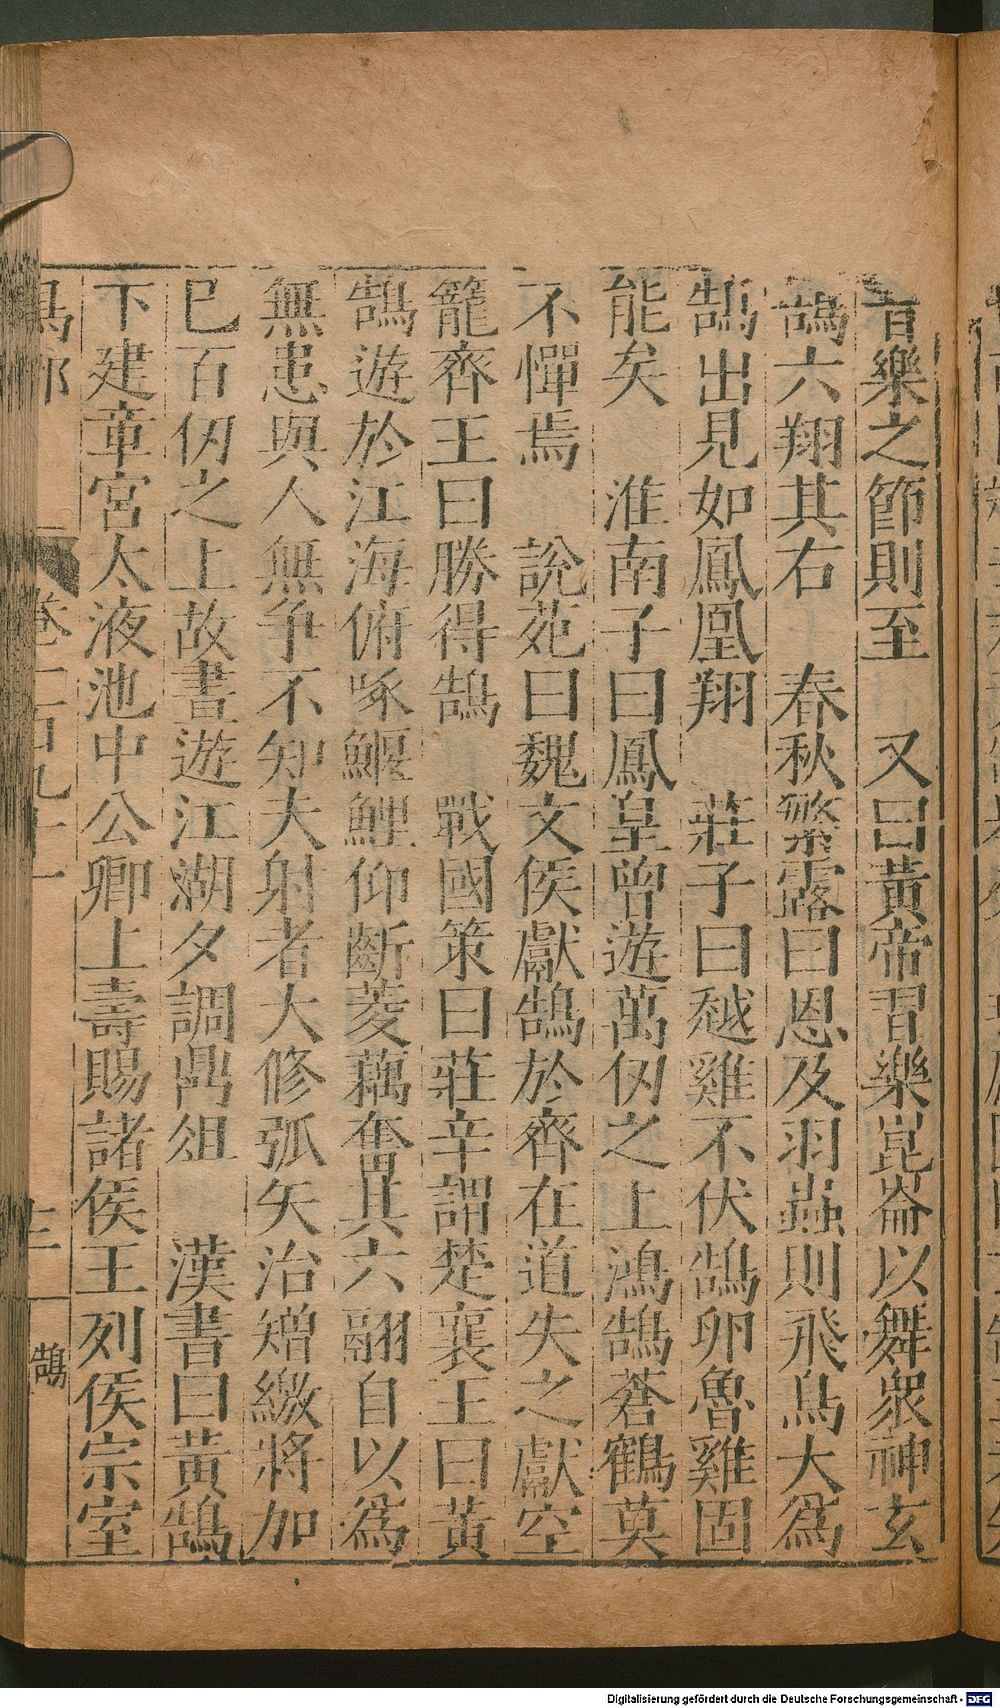 音樂之節則至　又曰黃帝習樂崑崙以舞衆神玄
鵠六翔其右　春秋繁露曰恩及羽蟲則飛鳥大爲
鵠出見如鳳凰翔　莊子曰越雞不伏鵠卵魯雞固
能矣　淮南子曰鳳皇曾遊萬仞之上鴻鵠蒼鶴莫
不憚焉　說苑曰魏文侯獻鵠於齊在道失之獻空
籠齊王曰勝得鵠　戰國策曰莊辛謂楚襄王曰黃
鵠遊於江海俯啄鰋鯉仰斷菱藕奮其六翮自以爲
無患與人無爭不知夫射者大修弧矢治矰繳將加
巳百仞之上故晝遊江湖夕調鼎俎　漢書曰黃鵠
下建章宮太液池中公卿上壽賜諸侯王列侯宗室
卷一百九十一
十二
鵠
Digitalisierung gefördert durch die Deutsche Forschungsgemeinschaft - DFG